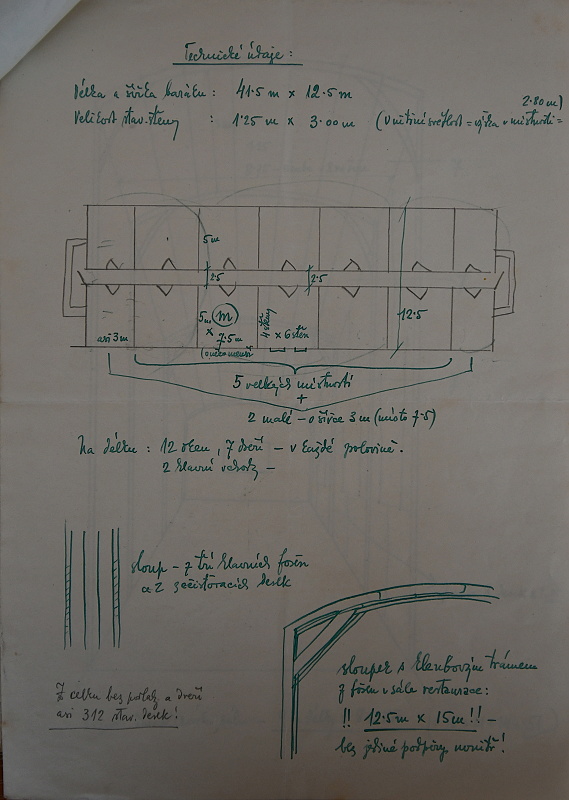 Technické údaje:
Délka a šířka baráku: 41·5 m × 12.5 m
2.80 m)
Velikost stav. stěny : 1'25 m × 3.00 m (vnitřní světlost = výška v místnosti =
5m
2.5 2.5
5m (m) × 7.5m
4 stěny × 6 stěn
12.5
asi 3m
5 velkých místností
+
2 malé – o šířce 3 m (místo 7·5)
Na délku : 12 oken, 7 dveří – v každé polovině.
2 hlavní vchody –
sloup – z tří hlavních fošen
a 2 začišťovacích desek
sloupek s klenbovým trámem
z fošen v sále restaurace:
!! 12.5m × 15m!! –
bez jediné podpěry uvnitř!
Z celku bez podlah a dveří
asi 312 stav. desek!